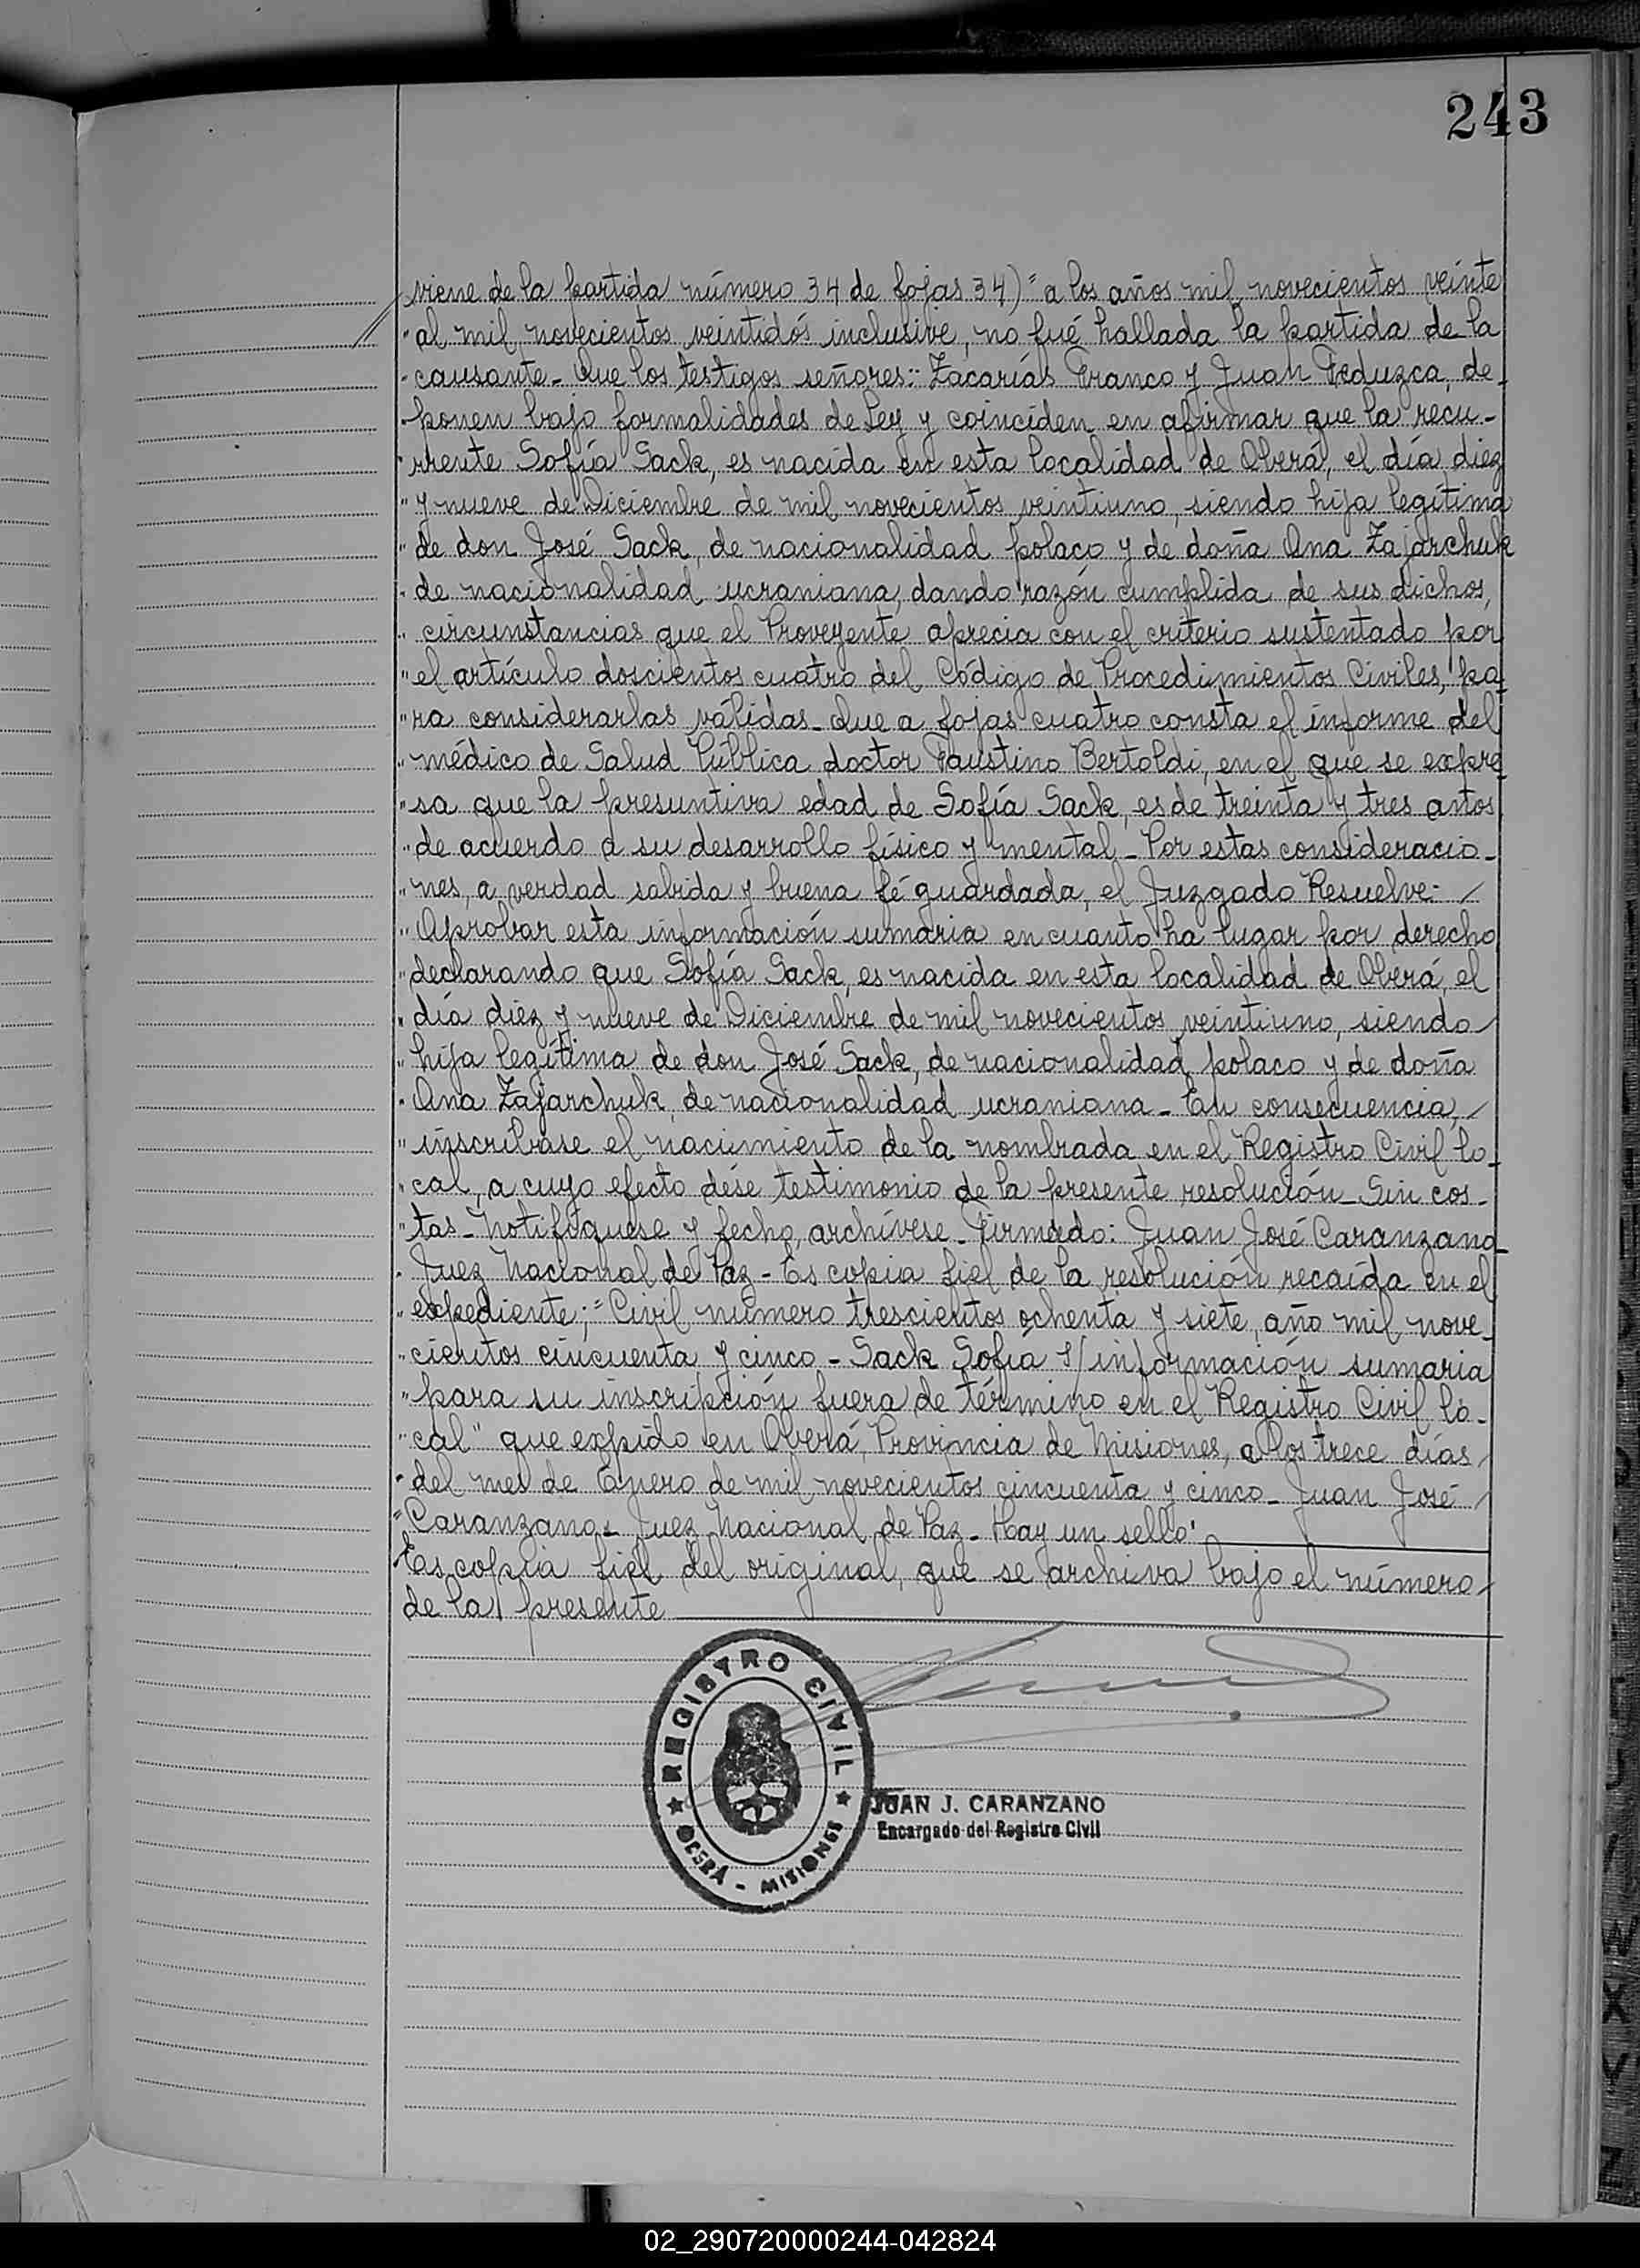 243
viene de la partida número 34 de fojas 34) " a los años mil novecientos veinte
" al mil novecientos veintidós inclusive, no fué hallada la partida de la
" causante - Que los testigos señores: Zacarías Franco y Juan Feduzca, de-
" ponen bajo formalidades de Ley y coinciden en afirmar que la recu-
" rrente Sofía Sack, es nacida en esta localidad de Oberá, el día diez
" y nueve de Diciembre de mil novecientos veintiuno, siendo hija legítima
" de don José Sack, de nacionalidad polaco y de doña Ana Zajarchuk
" de nacionalidad ucraniana, dando razón cumplida de sus dichos,
" circunstancias que el Proveyente aprecia con el criterio sustentado por
" el artículo doscientos cuatro del Código de Procedimientos Civiles, pa-
" ra considerarlas válidas - Que a fojas cuatro consta el informe del
" médico de Salud Pública doctor Faustino Bertoldi, en el que se expre-
" sa que la presuntiva edad de Sofía Sack, es de treinta y tres años
" de acuerdo a su desarrollo físico y mental - Por estas consideracio-
" nes, a verdad sabida y buena fé guardada, el Juzgado Resuelve: -
" Aprobar esta información sumaria en cuanto ha lugar por derecho
" declarando que Sofía Sack, es nacida en esta localidad de Oberá, el
" día diez y nueve de Diciembre de mil novecientos veintiuno, siendo
" hija legítima de don José Sack, de nacionalidad polaco y de doña
" Ana Zajarchuk, de nacionalidad ucraniana - En consecuencia,
" inscríbase el nacimiento de la nombrada en el Registro Civil lo-
" cal, a cuyo efecto dése testimonio de la presente resolución - Sin cos-
" tas - Notifíquese y fecho, archívese - Firmado: Juan José Caranzano -
" Juez Nacional de Paz - Es copia fiel de la resolución recaída en el
" expediente; " Civil número trescientos ochenta y siete, año mil nove-
" cientos cincuenta y cinco - Sack Sofía s/ información sumaria
" para su inscripción fuera de término en el Registro Civil lo-
" cal" que expido en Oberá, Provincia de Misiones, a los trece días
" del mes de Enero de mil novecientos cincuenta y cinco - Juan José
" Caranzano - Juez Nacional de Paz - Hay un sello"
Es copia fiel del original, que se archiva bajo el número
de la presente
REGISTRO CIVIL
OBERÁ - MISIONES
JUAN J. CARANZANO
Encargado del Registro Civil
W
X
Y
Z
02_290720000244-042824